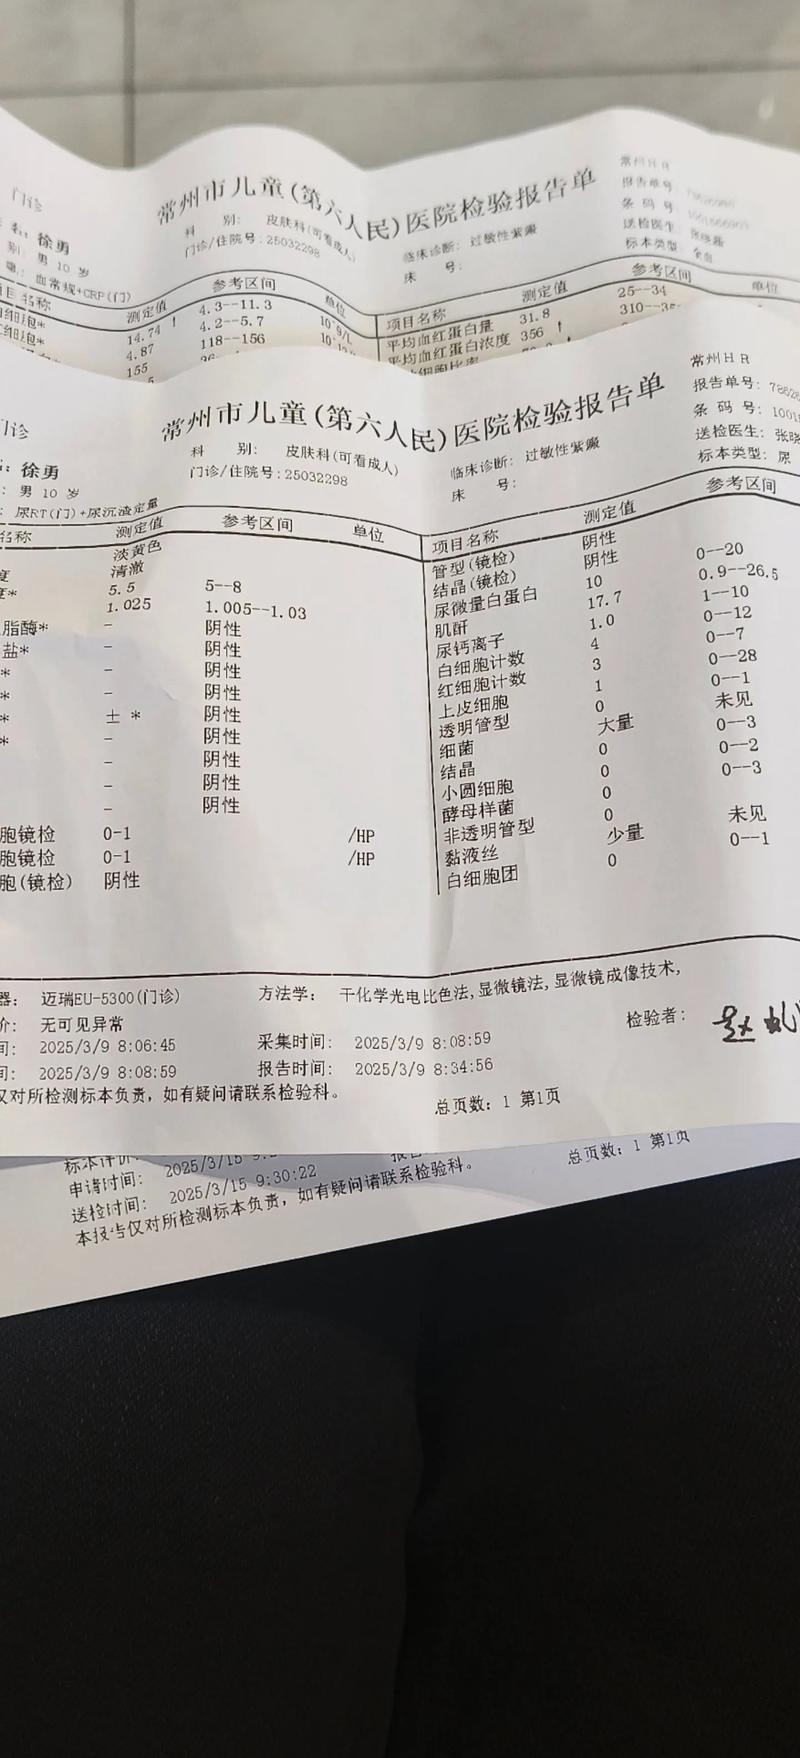 门诊
常州市儿童(第六人民)医院检验报告单
常州HR
报告单号
条码号
送检医生:
标本类型: 全血
徐勇
科 别: 皮肤科(可看成人)
临床诊断: 过敏性紫癜
男 10 岁
门诊/住院号:25032298
床 号:
血常规+CRP(门)
项目名称 测定值 参考区间 单位 项目名称 测定值 参考区间 单位
14.74 ↑ 4.3--11.3 10^9/L 平均血红蛋白量 31.8 25--34
4.87 4.2--5.7 平均血红蛋白浓度 356 ↑
155 118--156
常州市儿童(第六人民)医院检验报告单
常州HR
门诊
报告单号:
条 码 号:
送检医生:
标本类型: 尿
徐勇
科 别: 皮肤科(可看成人)
临床诊断: 过敏性紫癜
男 10 岁
门诊/住院号:25032298
床 号:
尿RT(门)+尿沉渣定量
名称 测定值 参考区间 单位 项目名称 测定值 参考区间
淡黄色
清澈
度* 5.5 5--8
1.025 1.005--1.03
脂酶* - 阴性
盐* - 阴性
* - 阴性
* - 阴性
* ± * 阴性
* - 阴性
- 阴性
- 阴性
- 阴性
胞镜检 0-1 /HP
胞镜检 0-1 /HP
胞(镜检) 阴性
管型(镜检) 阴性
结晶(镜检) 阴性
尿微量白蛋白 10 0--20
肌酐 17.7 0.9--26.5
尿钙离子 1.0 1--10
白细胞计数 4 0--12
红细胞计数 3 0--7
上皮细胞 1 0--28
透明管型 0 0--1
细菌 大量 未见
结晶 0 0--3
小圆细胞 0 0--2
酵母样菌 0 0--3
非透明管型 0
黏液丝 少量 未见
白细胞团 0 0--1
器: 迈瑞EU-5300(门诊) 方法学: 干化学光电比色法,显微镜法,显微镜成像技术,
价: 无可见异常
检验者:
间: 2025/3/9 8:06:45 采集时间: 2025/3/9 8:08:59
间: 2025/3/9 8:08:59 报告时间: 2025/3/9 8:34:56
仅对所检测标本负责，如有疑问请联系检验科。
总页数: 1 第1页
标本评价:
申请时间: 2025/3/15
送检时间: 2025/3/15 9:30:22
总页数: 1 第1页
本报告仅对所检测标本负责，如有疑问请联系检验科。